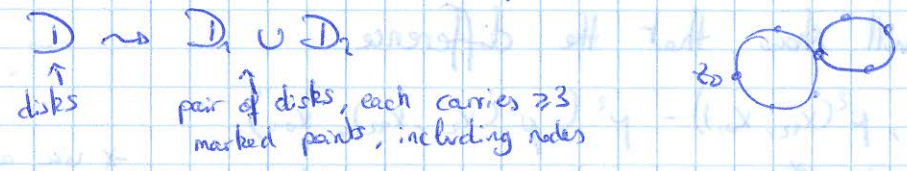 D ⇝ D₁ ∪ D₂
↑ ↑
disks pair of disks, each carries ⩾3
marked points, including nodes
z₀